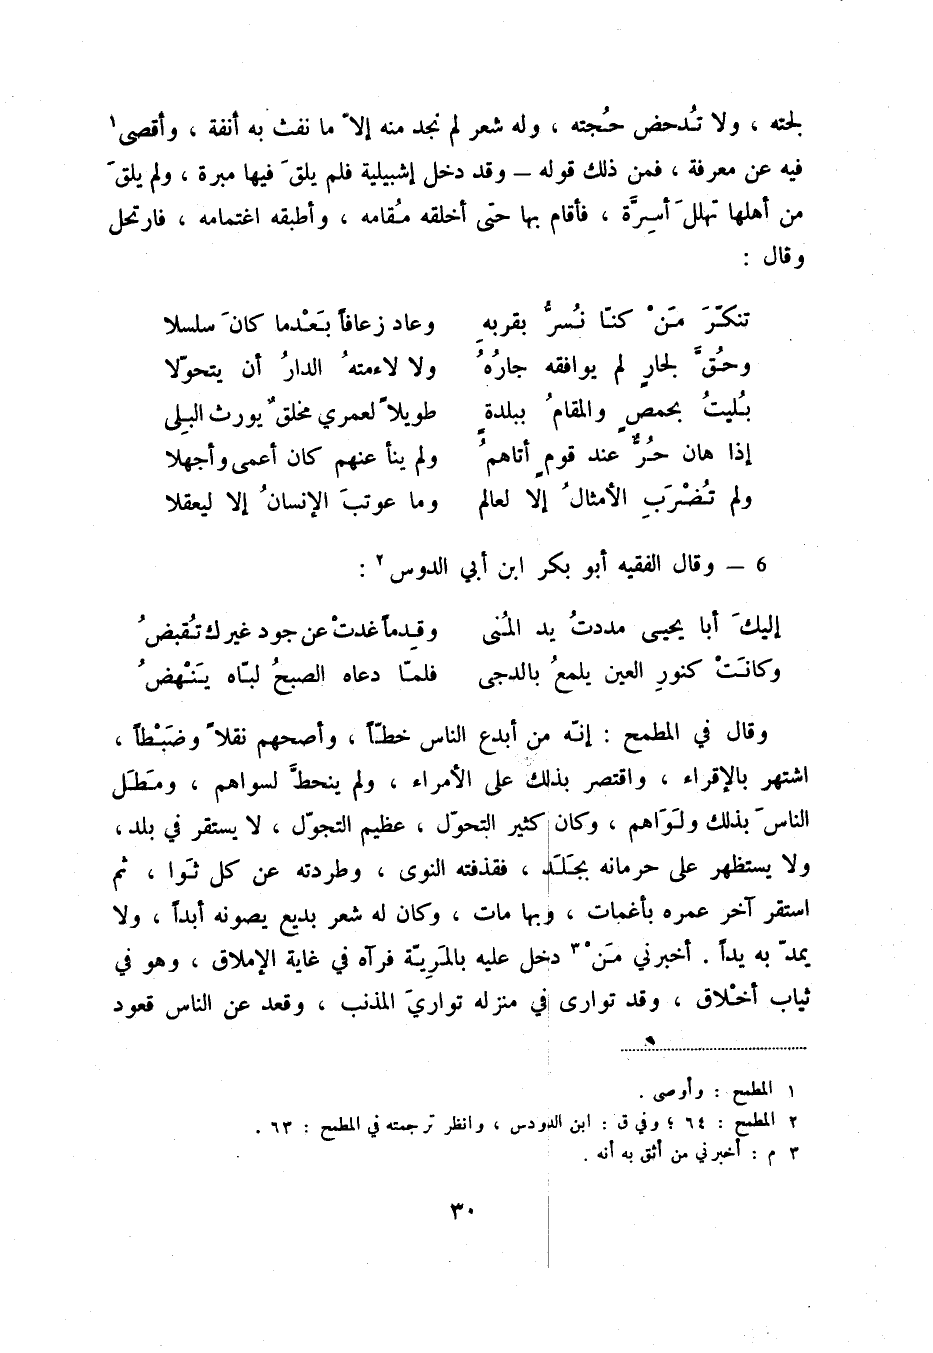 لجته ، ولا تُدحض حُجته ، وله شعر لم نجد منه إلاّ ما نفث به أنفة ، وأقصى١
فيه عن معرفة ، فمن ذلك قوله – وقد دخل إشبيلية فلم يلقَ فيها مبرة ، ولم يلقَ
من أهلها تهللَ أسِرَّة ، فأقام بها حتى أخلقه مُقامه ، وأطبقه اغتمامه ، فارتحل
وقال :
تنكّرَ مَنْ كنّا نُسرُّ بقربهِ وعاد زعافاً بَعْدما كانَ سلسلا
وحُقَّ لجارٍ لم يوافقه جارُهُ ولا لاءمتهُ الدارُ أن يتحوّلا
بُليتُ بحمصٍ والمقامُ ببلدةٍ طويلاً لعمري مخلقٌ يورث البِلى
إذا هان حُرٌّ عند قومٍ أتاهمُ ولم ينأ عنهم كان أعمى وأجهلا
ولم تُضْرَبِ الأمثالُ إلا لعالم وما عوتبَ الإنسانُ إلا ليعقلا
6 – وقال الفقيه أبو بكر ابن أبي الدوس٢ :
إليكَ أبا يحيى مددتُ يد المُنى وقِدماً غدتْ عن جود غيرك تُقبضُ
وكانَتْ كنورِ العين يلمعُ بالدجى فلمّا دعاه الصبحُ لبّاه يَنْهضُ
وقال في المطمح : إنّه من أبدع الناس خطّاً ، وأصحهم نقلاً وضَبْطاً ،
اشتهر بالإقراء ، واقتصر بذلك على الأمراء ، ولم ينحطَّ لسواهم ، ومَطَل
الناسَ بذلك ولَوَاهم ، وكان كثير التحوّل ، عظيم التجوّل ، لا يستقر في بلد،
ولا يستظهر على حرمانه بجَلَد ، فقذفته النوى ، وطردته عن كل ثَوا ، ثم
استقر آخر عمره بأغمات ، وبها مات ، وكان له شعر بديع يصونه أبداً ، ولا
يمدّ به يداً . أخبرني مَنْ٣ دخل عليه بالمَرِيّة فرآه في غاية الإملاق ، وهو في
ثياب أخْلاق ، وقد توارى في منزله تواريَ المذنب ، وقعد عن الناس قعود
١ المطمح : وأوصى .
٢ المطمح : ٦٤ ؛ وفي ق : ابن الدودس ، وانظر ترجمته في المطمح : ٦٣ .
٣ م : أخبرني من أثق به أنه .
٣٠